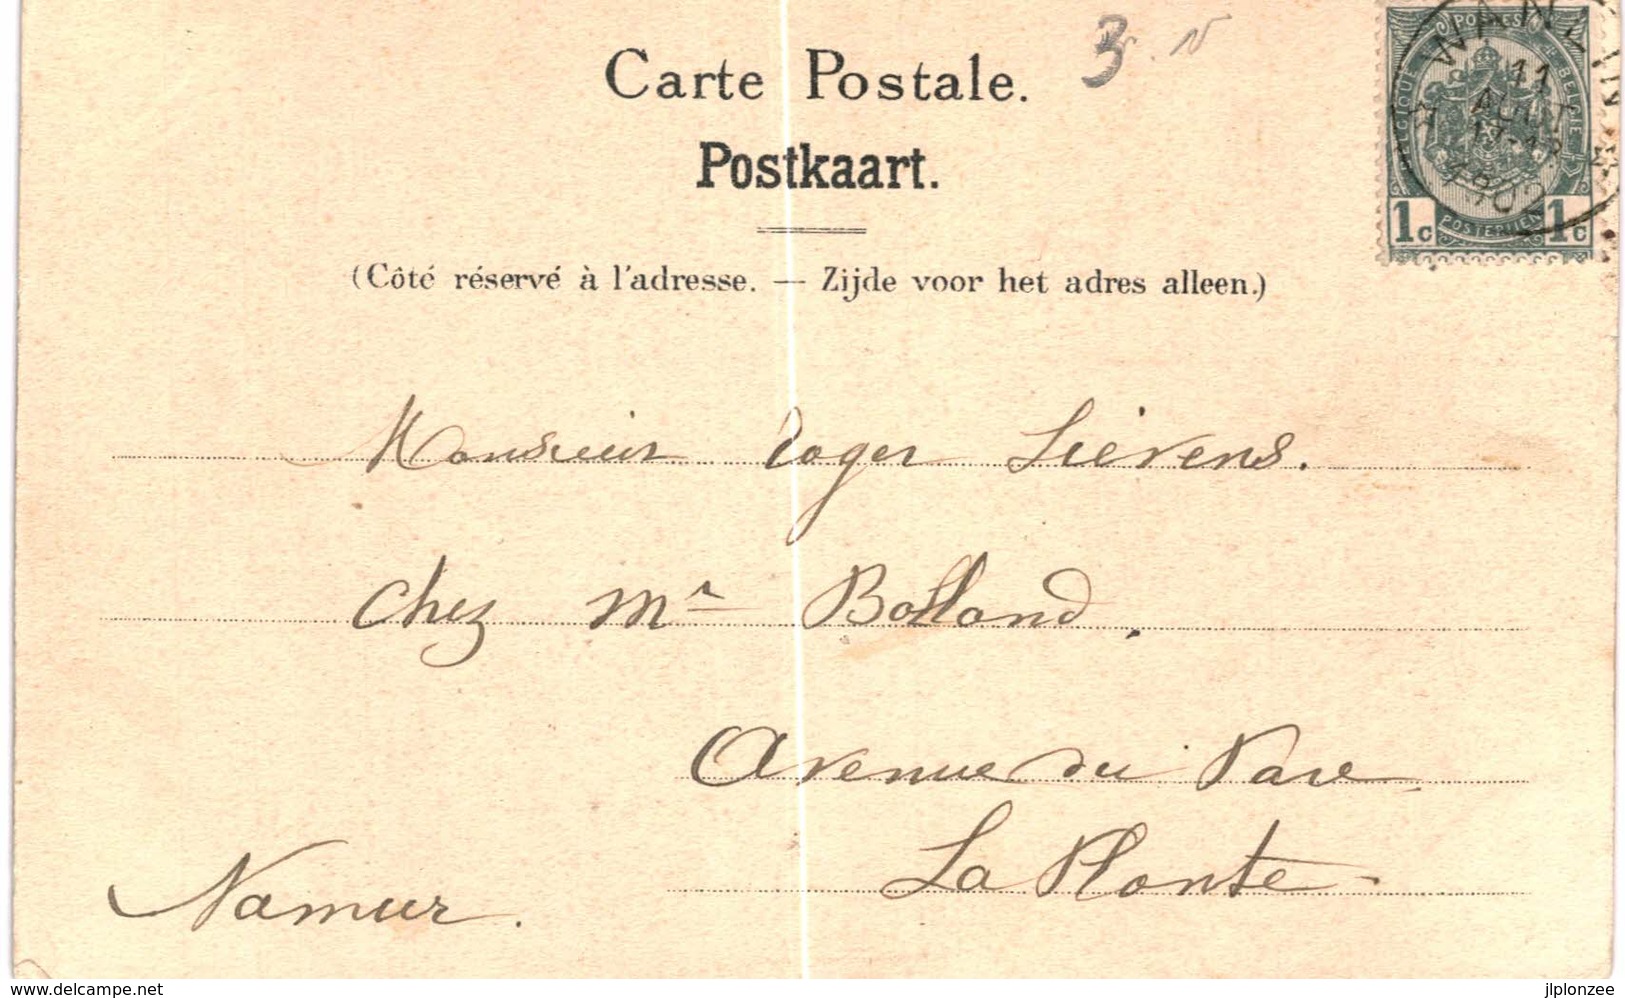 Carte Postale.
3
Postkaart.
(Côté réservé à l'adresse. — Zijde voor het adres alleen.)
POSTES
BELGIQUE
BELGIE
POSTERIJEN
1c 1c
11
AOUT
17-18
1902
Monsieur Roger Lièvens.
Chez Mr Bolland.
Avenue du Parc
La Plante
Namur.
delcampe.net
jlplonzee